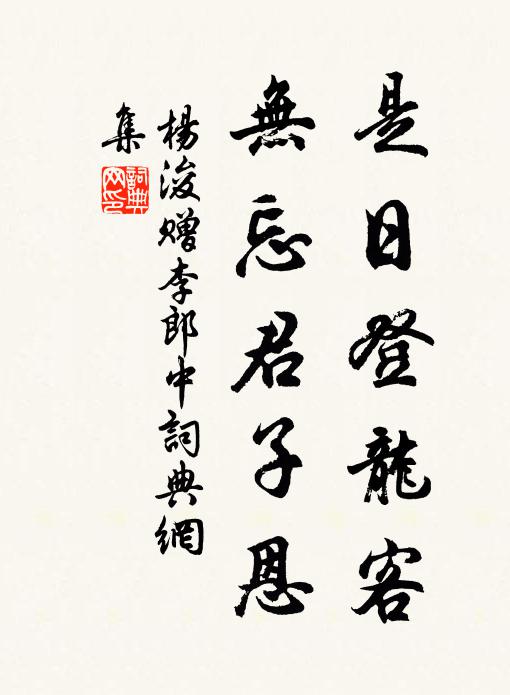 是日登龍客
無忘君子恩
楊浚贈李郎中詞典網
集
詞典网印